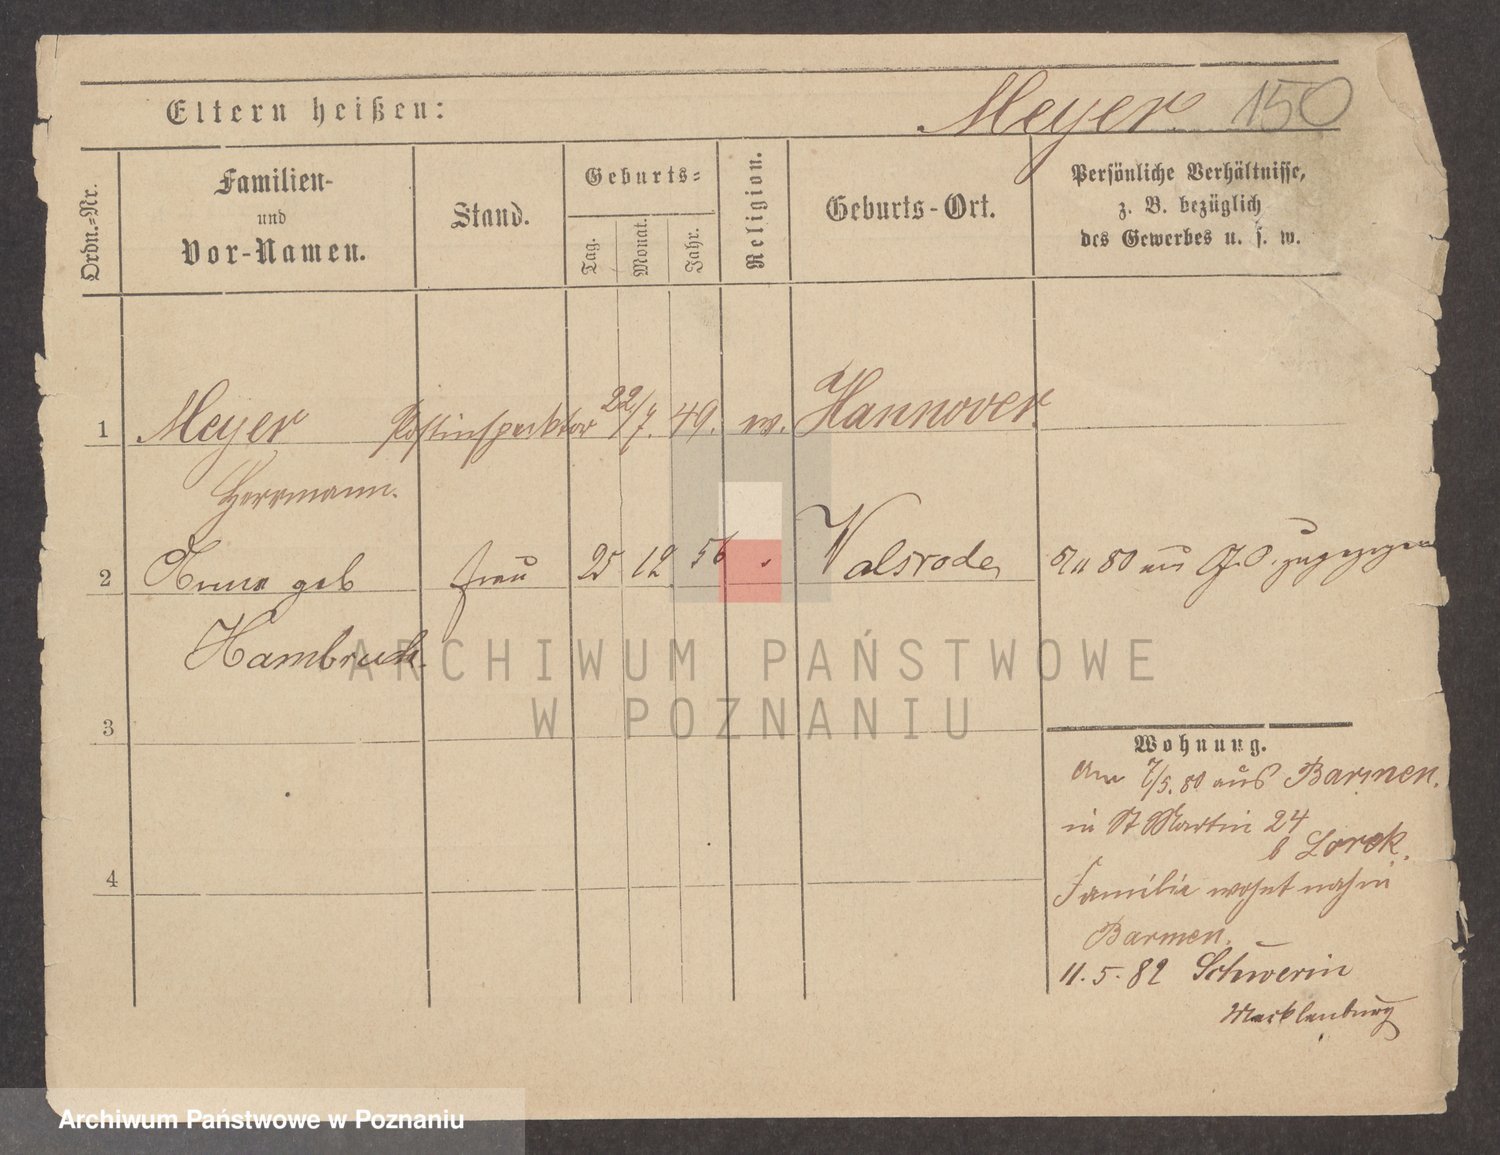 Eltern heißen: Meyer. 150
Ordn.-Nr.
Familien-
und
Vor-Namen.
Stand.
Geburts-
Tag.
Monat.
Jahr.
Religion.
Geburts-Ort.
Persönliche Verhältnisse,
z. B. bezüglich
des Gewerbes u. s. w.
1 Meyer Postinspecktor 22/7. 49. Hannover.
Herrmann.
2 Anna geb frau 25 12 56 Walsrode
zugezogen
Hambruch.
3
4
Wohnung.
Am 7/5. 80 aus Barmen.
in St Martin 24
b Lorek.
Familie wohnt noch in
Barmen.
11.5.82 Schwerin
Mecklenburg
ARCHIWUM PAŃSTWOWE
W POZNANIU
Archiwum Państwowe w Poznaniu